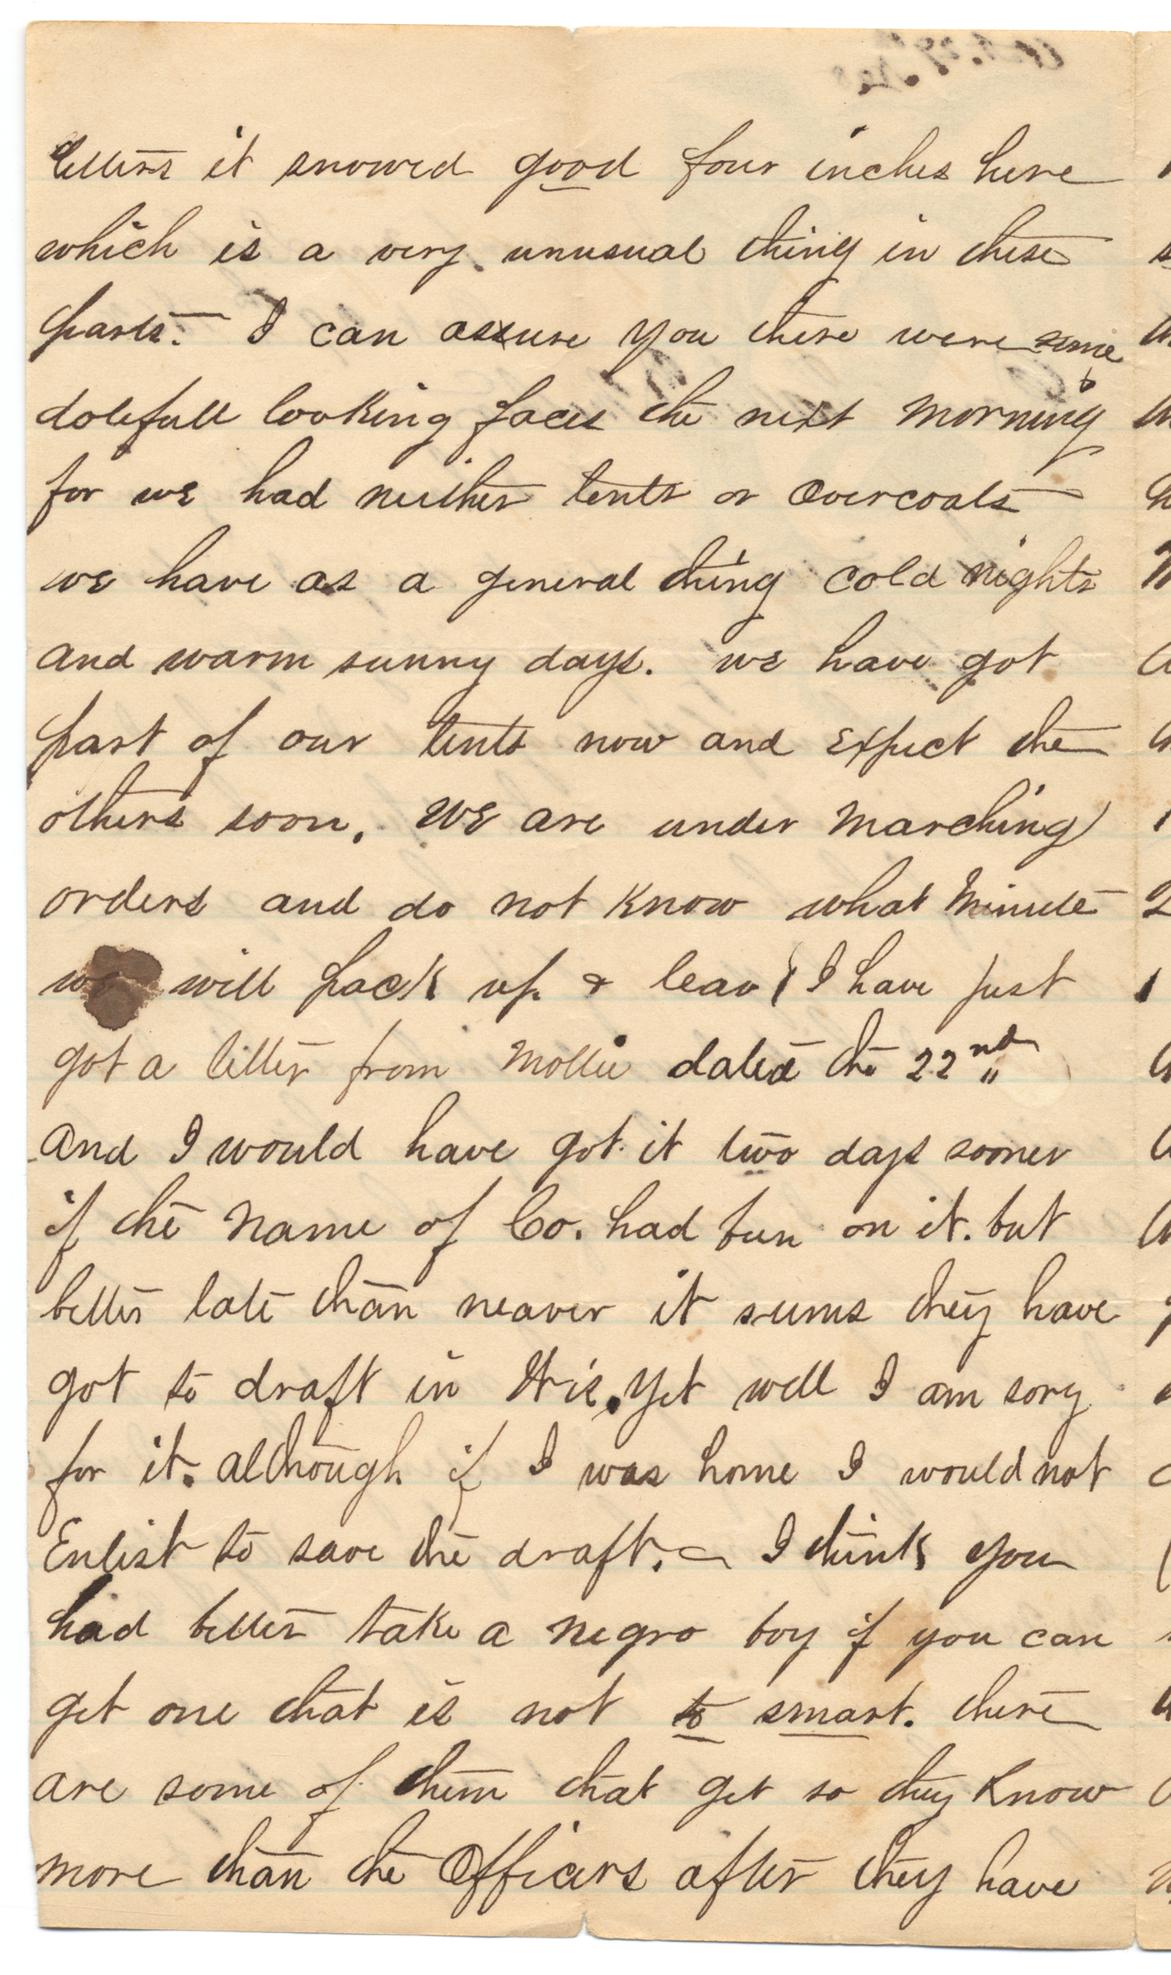 letters it snowed good four inches here
which is a very unusual thing in these
parts. I can assure you there were some
dolefull looking faces the next morning
for we had neither tents or overcoats
we have as a general thing cold nights
and warm sunny days. we have got
part of our tents now and expect the
others soon. We are under marching
orders and do not know what minute
we will pack up & leav I have just
got a letter from Mollie dated the 22nd
and I would have got it two days sooner
if the name of Co. had been on it. but
better late than neaver it seems they have
got to draft in Wis. yet well I am sory
for it. although if I was home I would not
Enlist to save the draft. I think you
had better take a negro boy if you can
get one that is not to smart. there
are some of them that get so they know
more than the Officers after they have